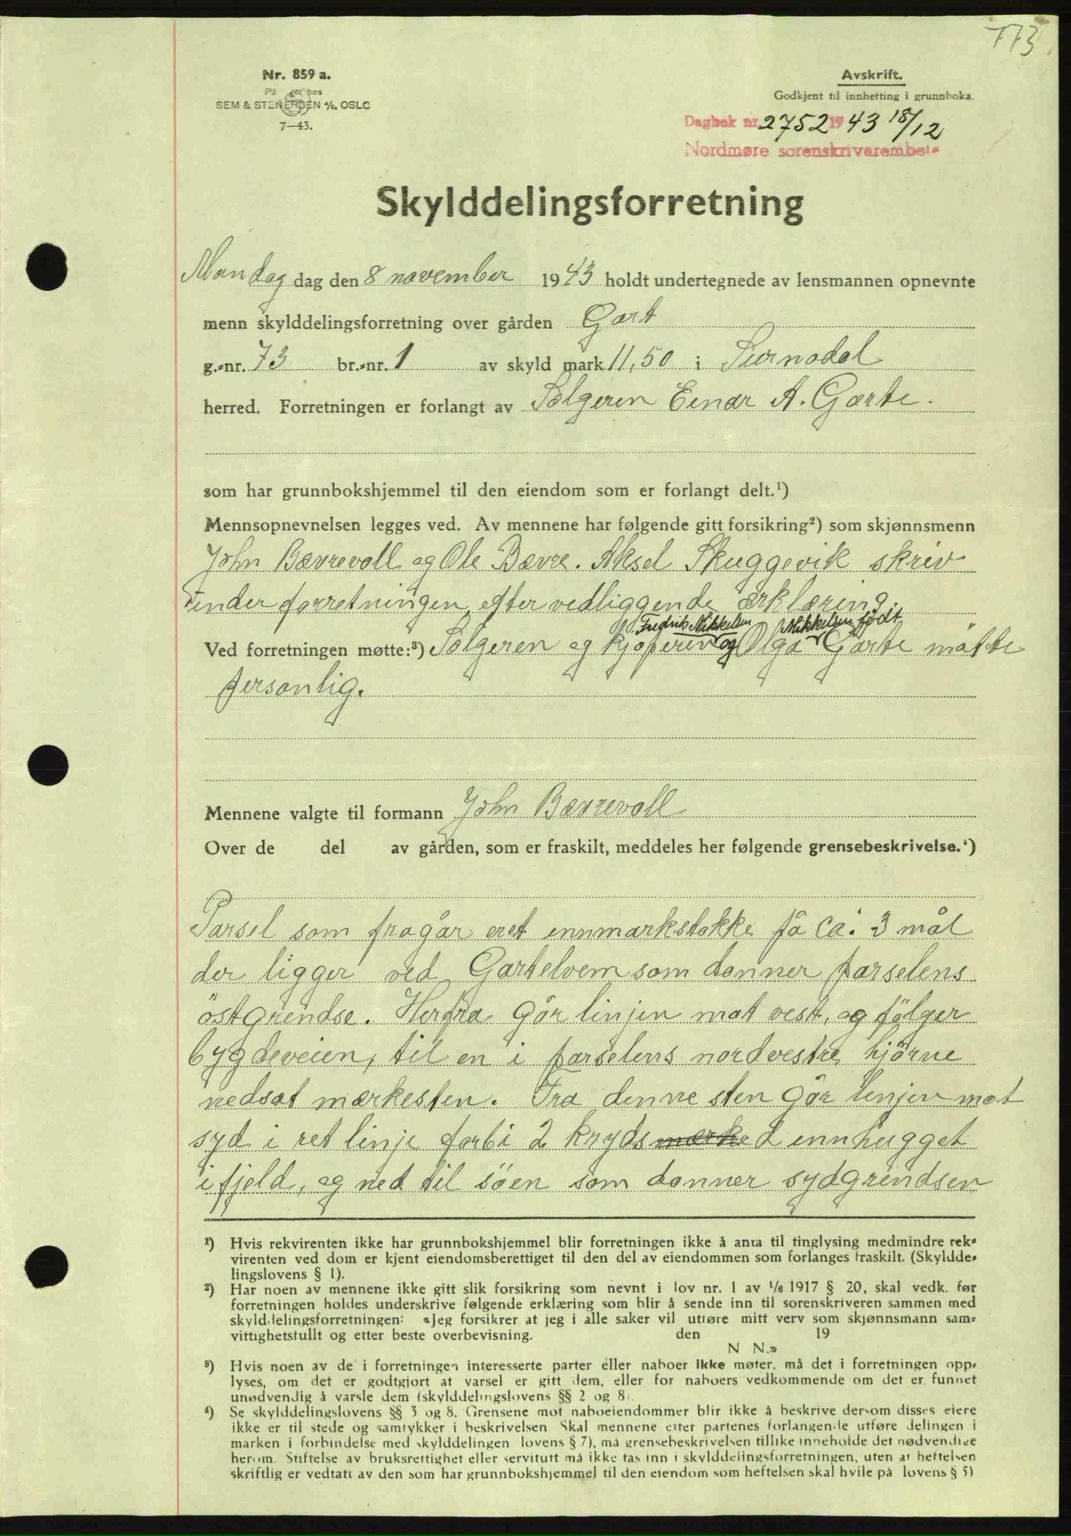 773
Nr. 859 a.
På lager hos
SEM & STENERSEN A/S, OSLO
7—43.
Avskrift.
Godkjent til innhefting i grunnboka.
Dagbok nr. 2752 1943 18/12
Nordmøre sorenskriverembete
Skylddelingsforretning
Mandag dag den 8 november 1943 holdt undertegnede av lensmannen opnevnte
menn skylddelingsforretning over gården Gart
g.-nr. 73 br.-nr. 1 av skyld mark 11,50 i Surnadal
herred. Forretningen er forlangt av Selgeren Einar A. Garte.
som har grunnbokshjemmel til den eiendom som er forlangt delt.¹)
Mennsopnevnelsen legges ved. Av mennene har følgende gitt forsikring²) som skjønnsmenn
John Bærrevoll og Ole Bævre. Aksel Skuggevik skriv
under forretningen efter vedliggende erklæring
Fredrik Mikkelsen Mikkelsen født
Ved forretningen møtte:³) Selgeren og kjøperen og Olga Garte møtte
personlig.
Mennene valgte til formann John Bærrevoll
Over de del av gården, som er fraskilt, meddeles her følgende grensebeskrivelse.⁴)
Parsel som fragår eret innmarkstøkke på ca: 3 mål
der ligger ved Gartelvem som danner parselens
östgrendse. Herfra går linjen mot vest, og følger
bygdeveien, til en i parselens nordvestre hjørne
nedsat merkesten. Fra denne sten går linjen mot
syd i ret linje forbi 2 kryds mærked innhugget
i fjeld, og ned til søen som danner sydgrendsen
¹) Hvis rekvirenten ikke har grunnbokshjemmel blir forretningen ikke å anta til tinglysing medmindre rek-
virenten ved dom er kjent eiendomsberettiget til den del av eiendommen som forlanges fraskilt. (Skyldde-
lingslovens § 1).
²) Har noen av mennene ikke gitt slik forsikring som nevnt i lov nr. 1 av 1/6 1917 § 20, skal vedk. før
forretningen holdes underskrive følgende erklæring som blir å sende inn til sorenskriveren sammen med
skylddelingsforretningen: «Jeg forsikrer at jeg i alle saker vil utføre mitt verv som skjønnsmann sam-
vittighetsfullt og etter beste overbevisning. den 19
N N.»
³) Hvis noen av de i forretningen interesserte parter eller naboer ikke møter, må det i forretningen opp-
lyses, om det er godtgjort at varsel er gitt dem, eller for naboers vedkommende om det er funnet
unødvendig å varsle dem (skylddelingslovens §§ 2 og 8).
⁴) Se skylddelingslovens §§ 3 og 8. Grensene mot naboeiendommer blir ikke å beskrive dersom disses eiere
ikke er til stede og samtykker i beskrivelsen Skal mennene etter partenes forlangende utføre delingen i
marken i forbindelse med skylddelingen lovens § 7), må grensebeskrivelsen tillike inneholde det nødvendige
herom. Stiftelse av bruksrettighet eller servitutt må ikke tas inn i skylddelingsforretningen, uten at heftelsen
skriftlig er vedtatt av den som har grunnbokshjemmel til den eiendom som heftelsen skal hvile på lovens § 5)